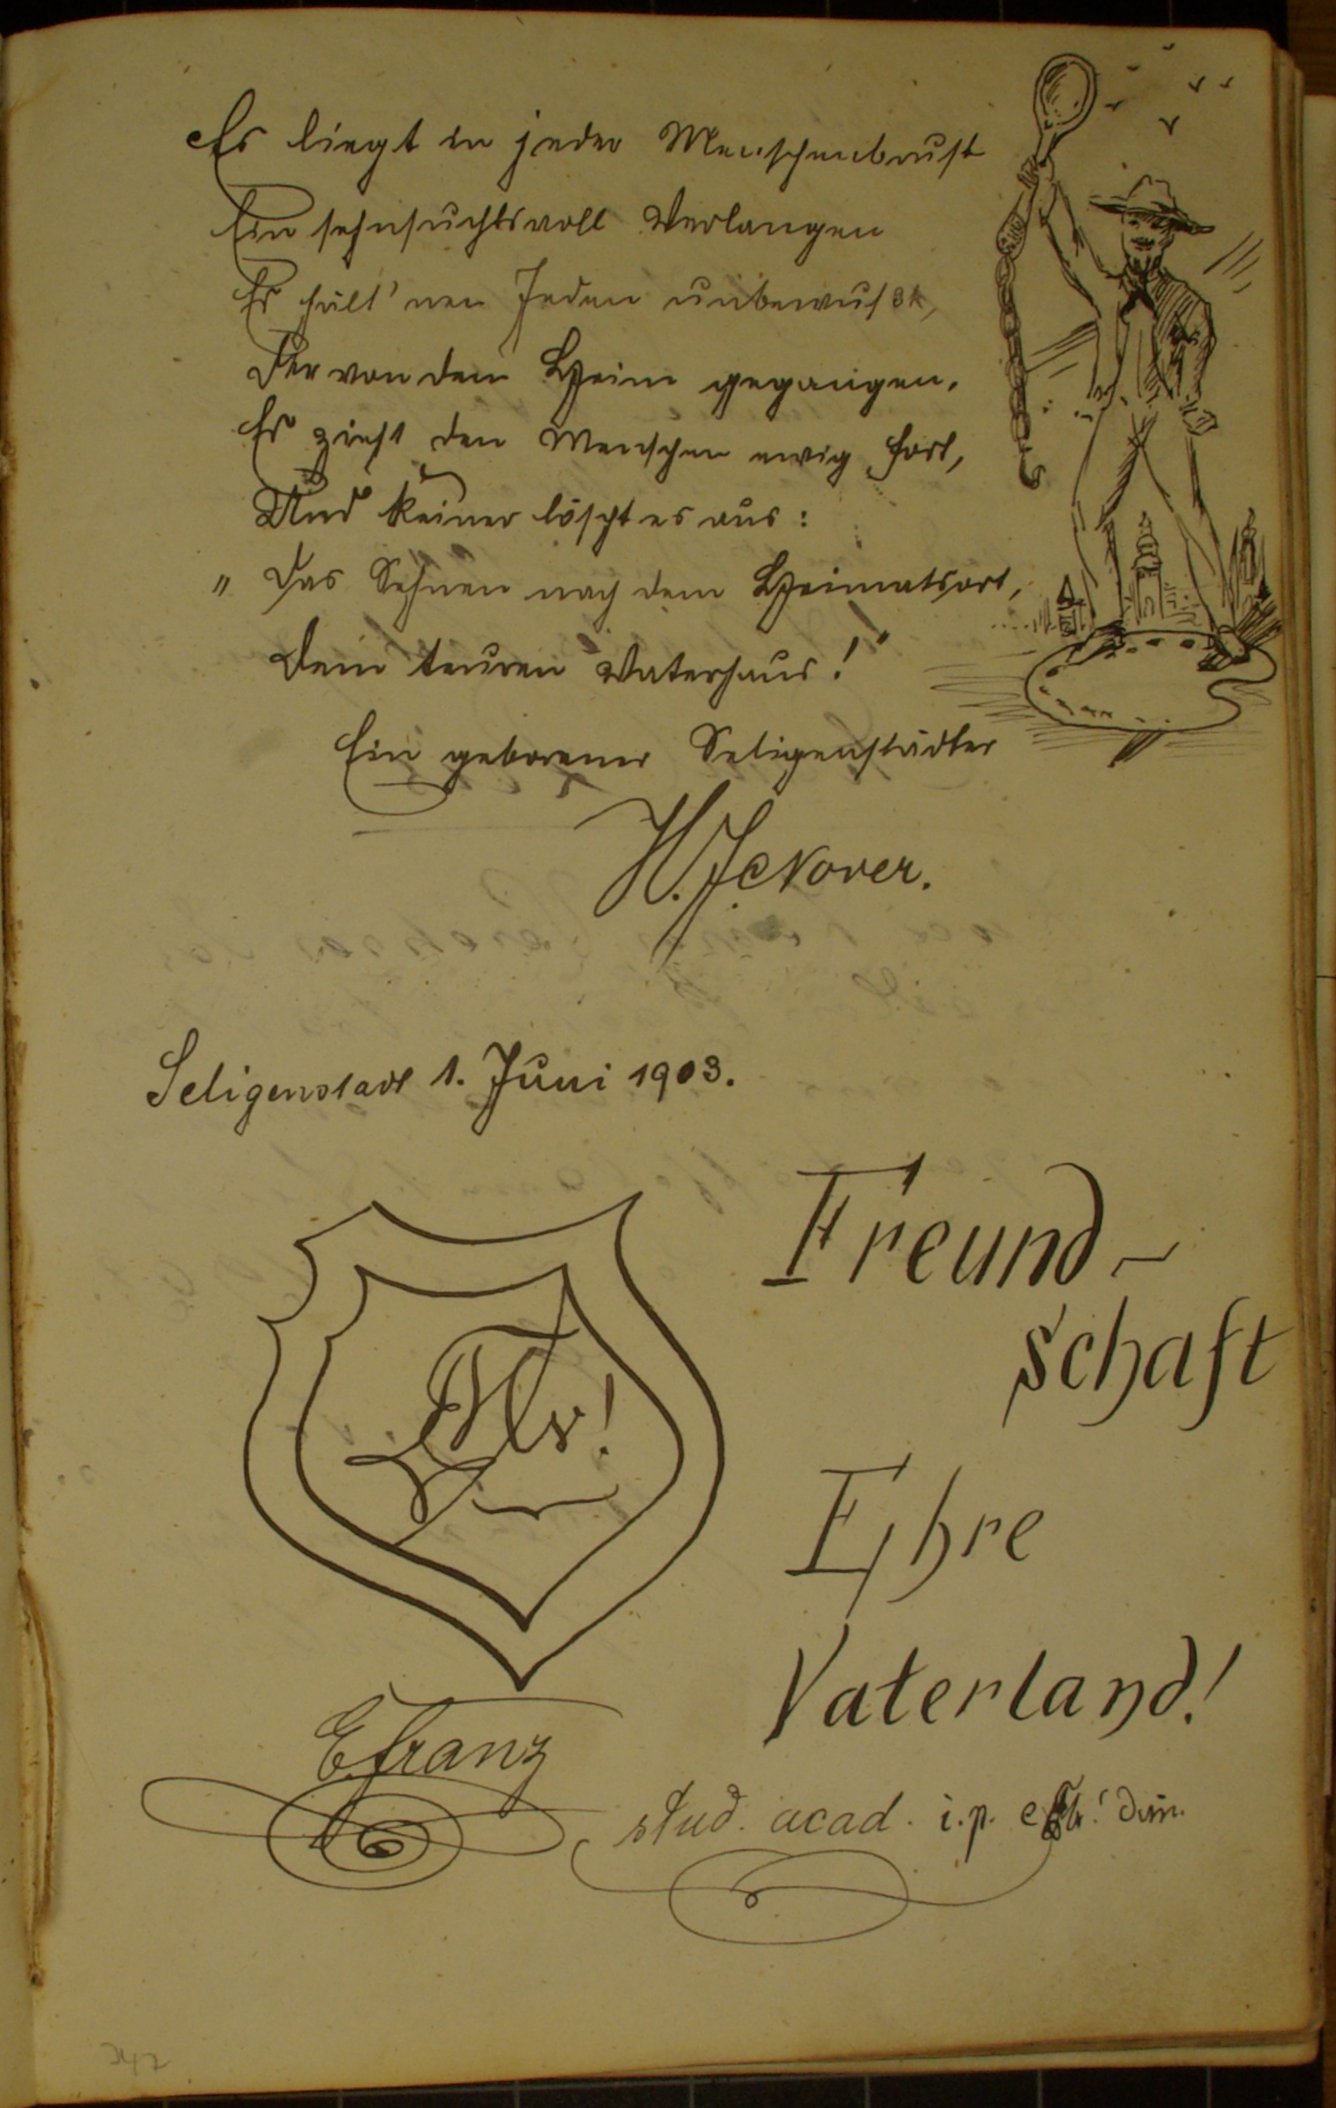 Es liegt in jeder Menschenbrust
Ein sehnsuchtsvoll Verlangen
Es hält 'nen Jeden unbewußt,
Der von dem Heim gegangen.
Es zieht den Menschen ewig fort,
Und keiner löscht es aus:
"Das Sehnen nach dem Heimatsort,
Dem teuren Vaterhaus!"
Ein geborener Seligenstädter
H.
Seligenstadt 1. Juni 1903.
Freund-
schaft
Ehre
Vaterland!
E. Franz
stud. acad. i.p.